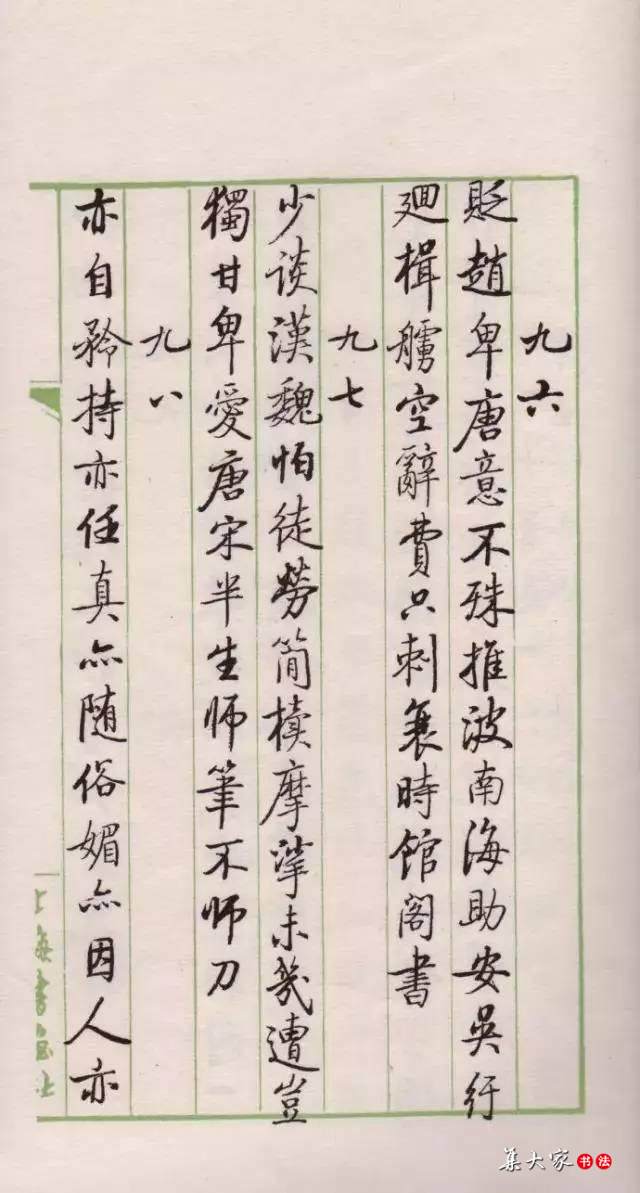 九六
貶趙卑唐意不殊推波南海助安吳紆
廻楫艣空辭費只刺衰時館閣書
九七
少谈漢魏怕徒勞简牘摩挲未幾遭豈
獨甘卑愛唐宋半生师筆不师刀
九八
亦自矜持亦任真亦随俗媚亦因人亦
上海書畫社
集大家书法